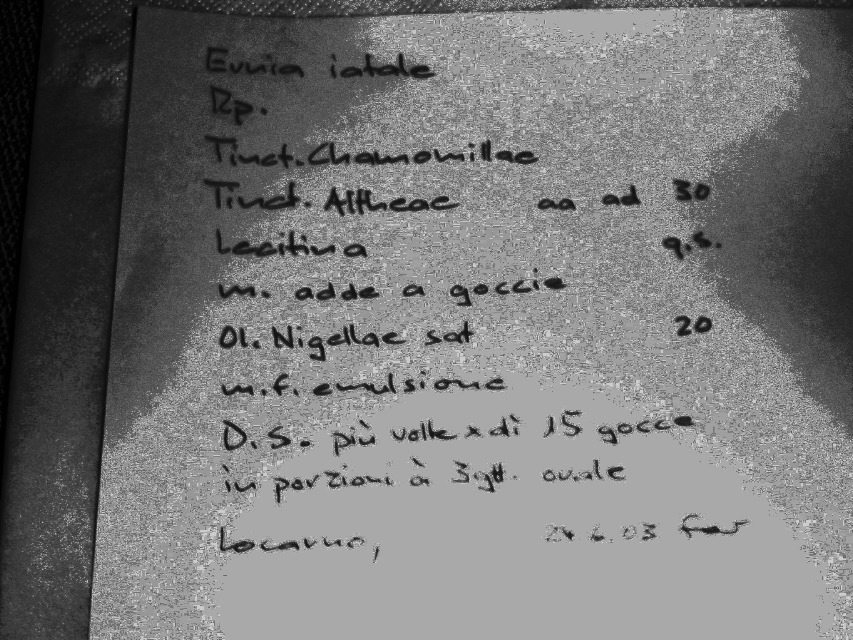 Evnia iatale
Rp.
Tinct. Chamomillae
Tinct. Altheae aa ad 30
Lecitina q.s.
m. adde a goccie
Ol. Nigellae sat 20
m.f. emulsione
D.S. più volte x dì 15 gocce
in porzioni à 3 gtt.
Locarno, 24.6.03